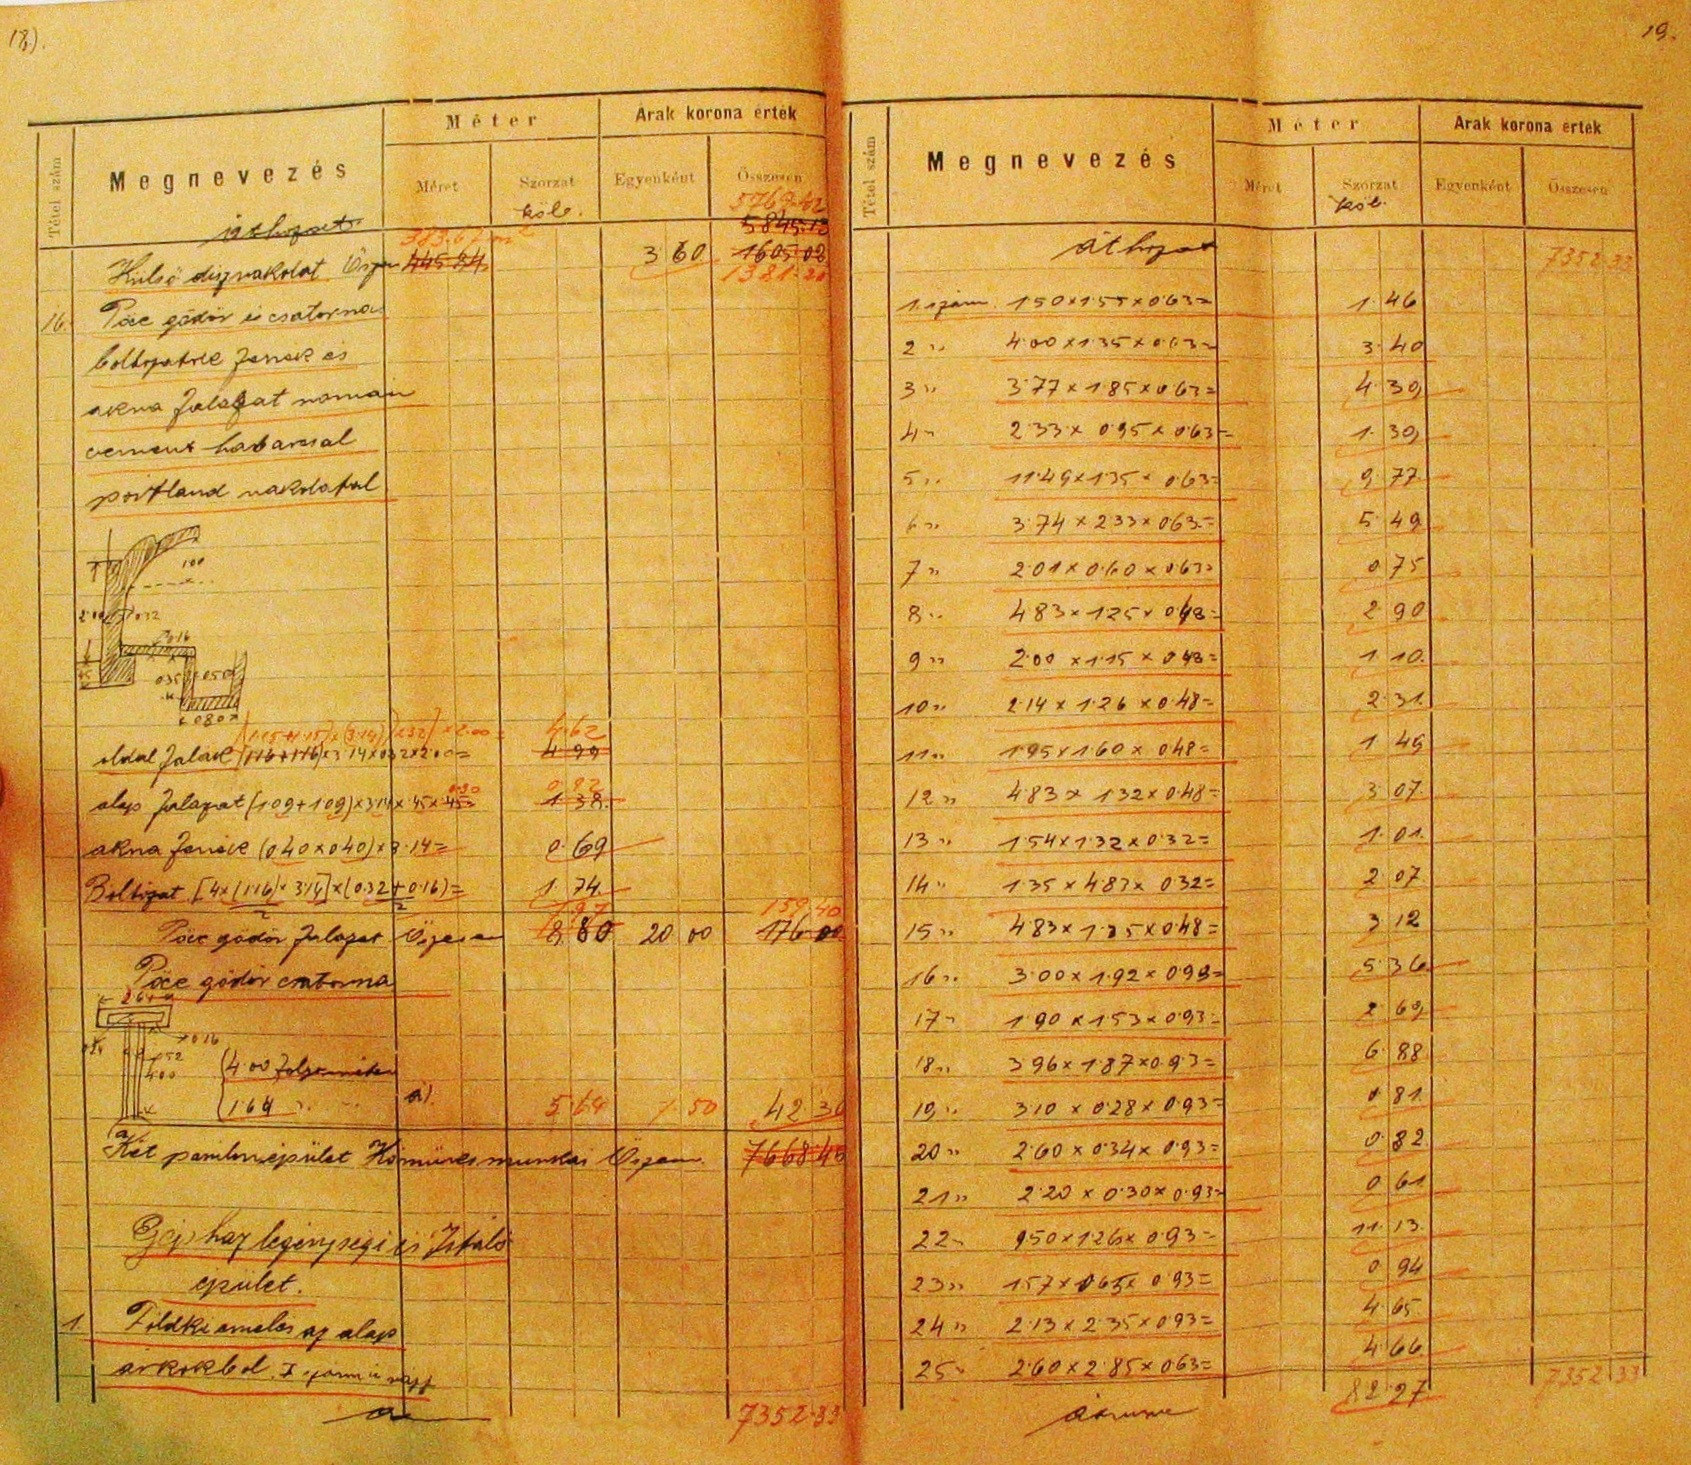 18).
Tétel szám
Megnevezés
Méter
Árak korona érték
Méret
Szorzat
Egyenként
Összesen
köb.
5769·42
5845·13
áthozat
383.67 m²
Külső díszvakolat Összen 445·84 3 60 1605·08
1381·20
16. Pöce gödör és csatorna
boltozatok fenek és
akna falazat román
cement habarcsal
portland vakolatal
100
2·00 0·32
0·16
0·35 0·50
0·80
4.62
oldal falak (1·16+1·16)×3·14×0·32×2·00= 4·99
0·82
0·30
alap falazat (1·09+1·09)×3·14×·45×·45= 1·38
akna fenék (0·40×0·40)×3·14= 0·69
Boltozat [4×(1·16)×3·14]×(0·32+0·16)= 1·74
2 2
7·97 159·40
Pöce gödör falazat Összesen 8 80 20 00 176 00
Pöce gödör csatorna
0·16
·052
400
(4·00 folyóméter
(1·64 " á). 5·64 7·50 42·30
Két pavilon épület Kőműves munkái Összen. 7668·45
Gép ház legénységi és Istáló
épület.
1. Földki emelés az alap
árkokból
7352·33
19.
Tétel szám
Megnevezés
Méter
Árak korona érték
Méret
Szorzat
Egyenként
Összesen
köb.
áthozat 7352·33
1. szám 1·50×1·55×0·63= 1·46
2 " 4·00×1·35×0·63= 3·40
3 " 3·77×1·85×0·63= 4·39
4 " 2·33×0·95×0·63= 1·39
5 " 11·49×1·35×0·63= 9·77
6 " 3·74×2·33×0·63= 5·49
7 " 2·01×0·60×0·63= 0·75
8 " 4·83×1·25×0·48= 2·90
9 " 2·00×1·15×0·48= 1·10
10 " 2·14×1·26×0·48= 2·31
11 " 1·95×1·60×0·48= 1·49
12 " 4·83×1·32×0·48= 3·07
13 " 1·54×1·32×0·32= 1·01
14 " 1·35×4·83×0·32= 2·07
15 " 4·83×1·35×0·48= 3 12
16 " 3·00×1·92×0·93= 5·36
17 " 1·90×1·53×0·93= 2·69
18 " 3·96×1·87×0·93= 6·88
19 " 3·10×0·28×0·93= 0·81
20 " 2·60×0·34×0·93= 0·82
21 " 2·20×0·30×0·93= 0·61
22 " 9·50×1·26×0·93= 11·13
23 " 1·57×0·65×0·93= 0·94
24 " 2·13×2·35×0·93= 4·65
25 " 2·60×2·85×0·63= 4·66
82·27 7352·33